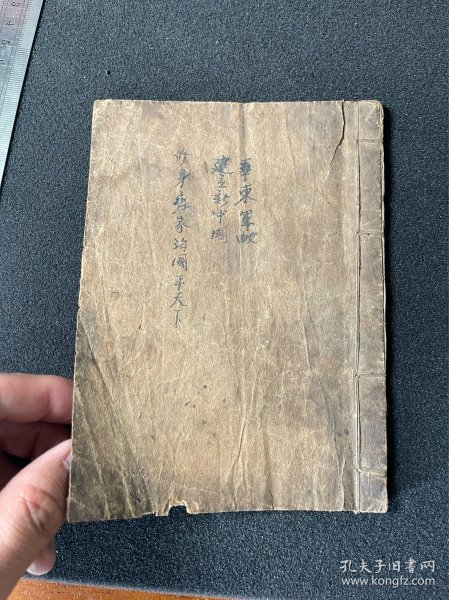 華東軍政
建立新中国
修身齊家治國平天下
孔夫子旧书网
www.kongfz.com